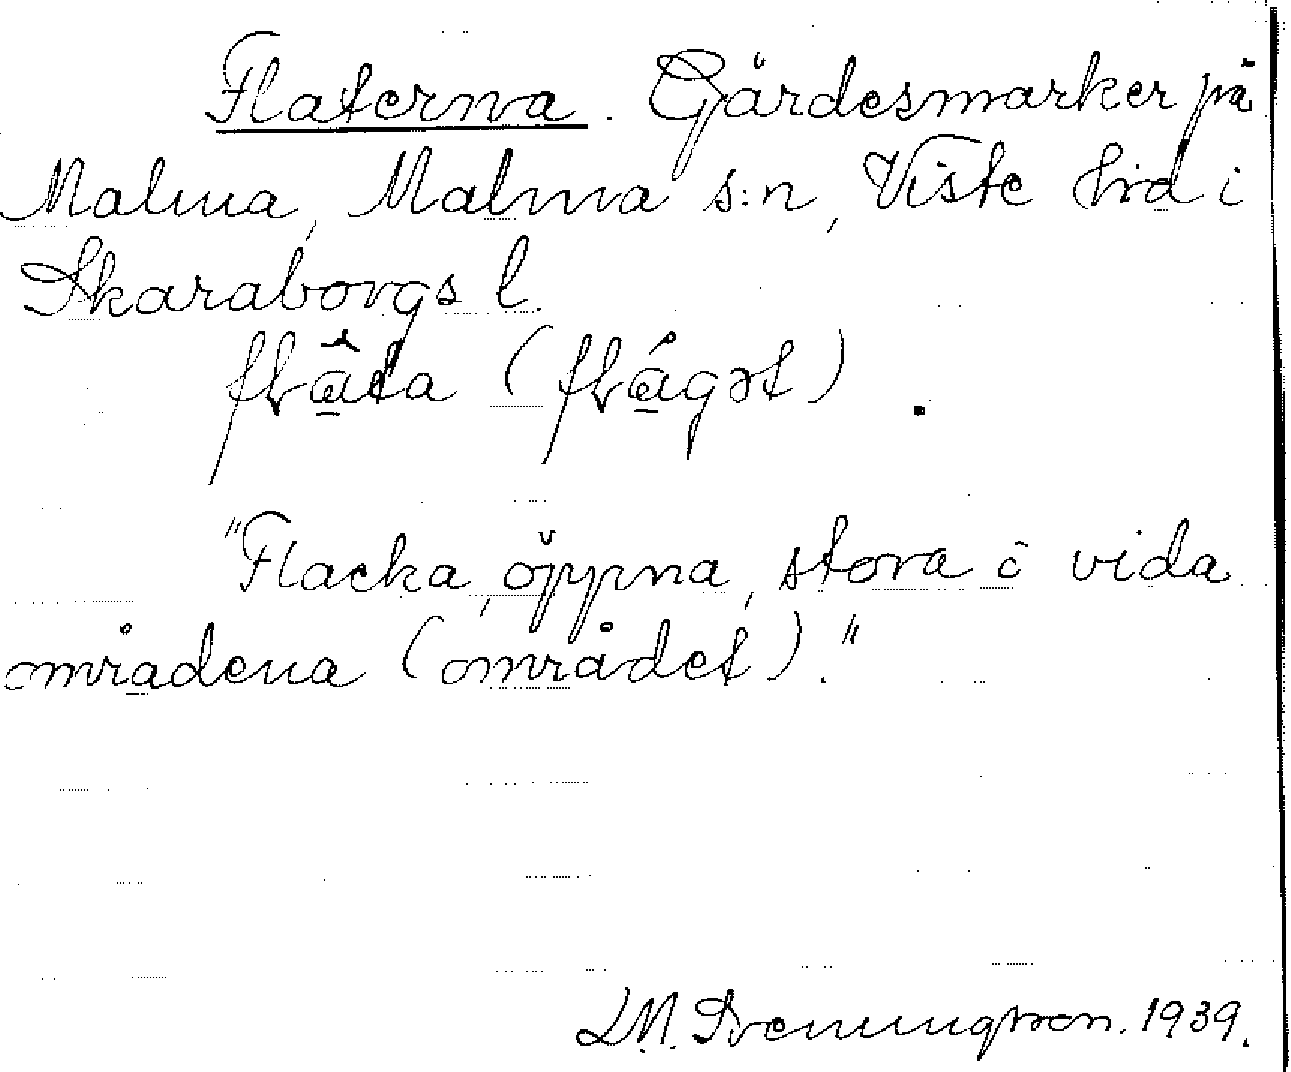 Flaterna. Gärdesmarker på
Malma, Malma s:n, Viste hd i
Skaraborgs l.
"Flacka, öppna, stora o vida
områdena (området)."
L.M. Svenungsson. 1939.